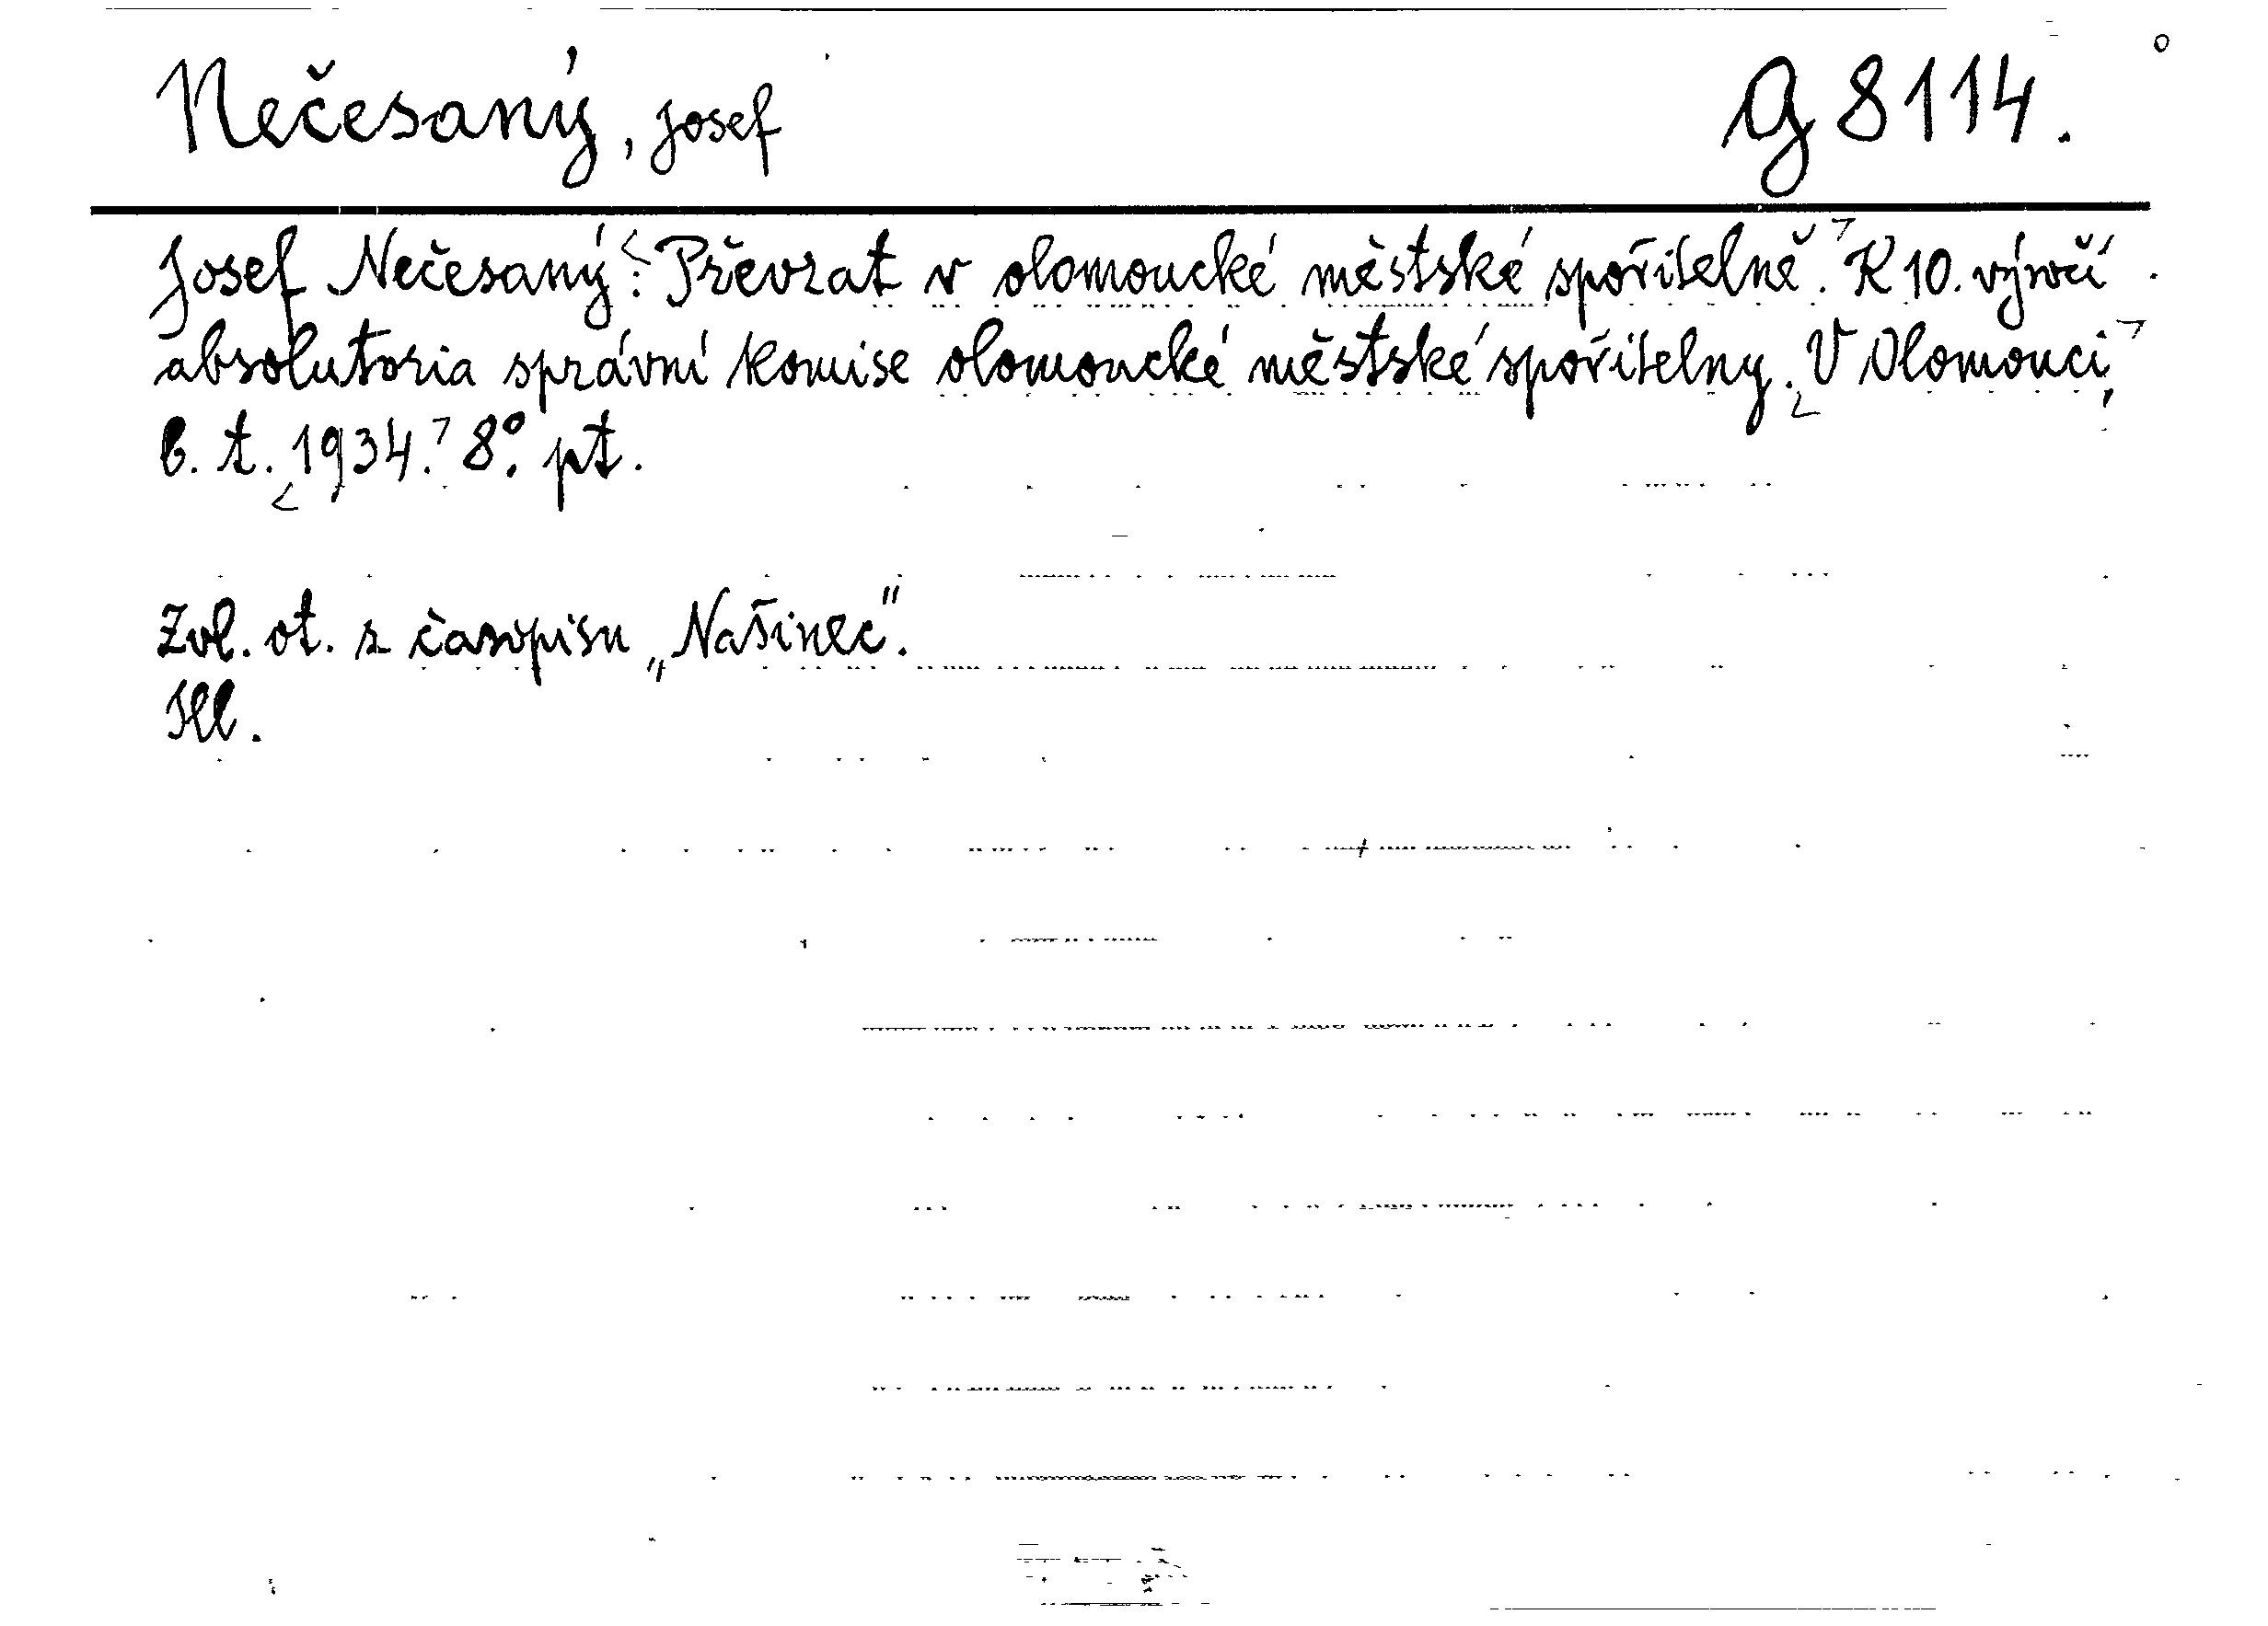 Nečesaný, Josef G 8114.
Josef Nečesaný: Převrat v olomoucké městské spořitelně. K 10. výročí
absolutoria správní komise olomoucké městské spořitelny. V Olomouci,
b. t. 1934. 8°. př.
Zvl. ot. z časopisu „Našinec".
Ill.